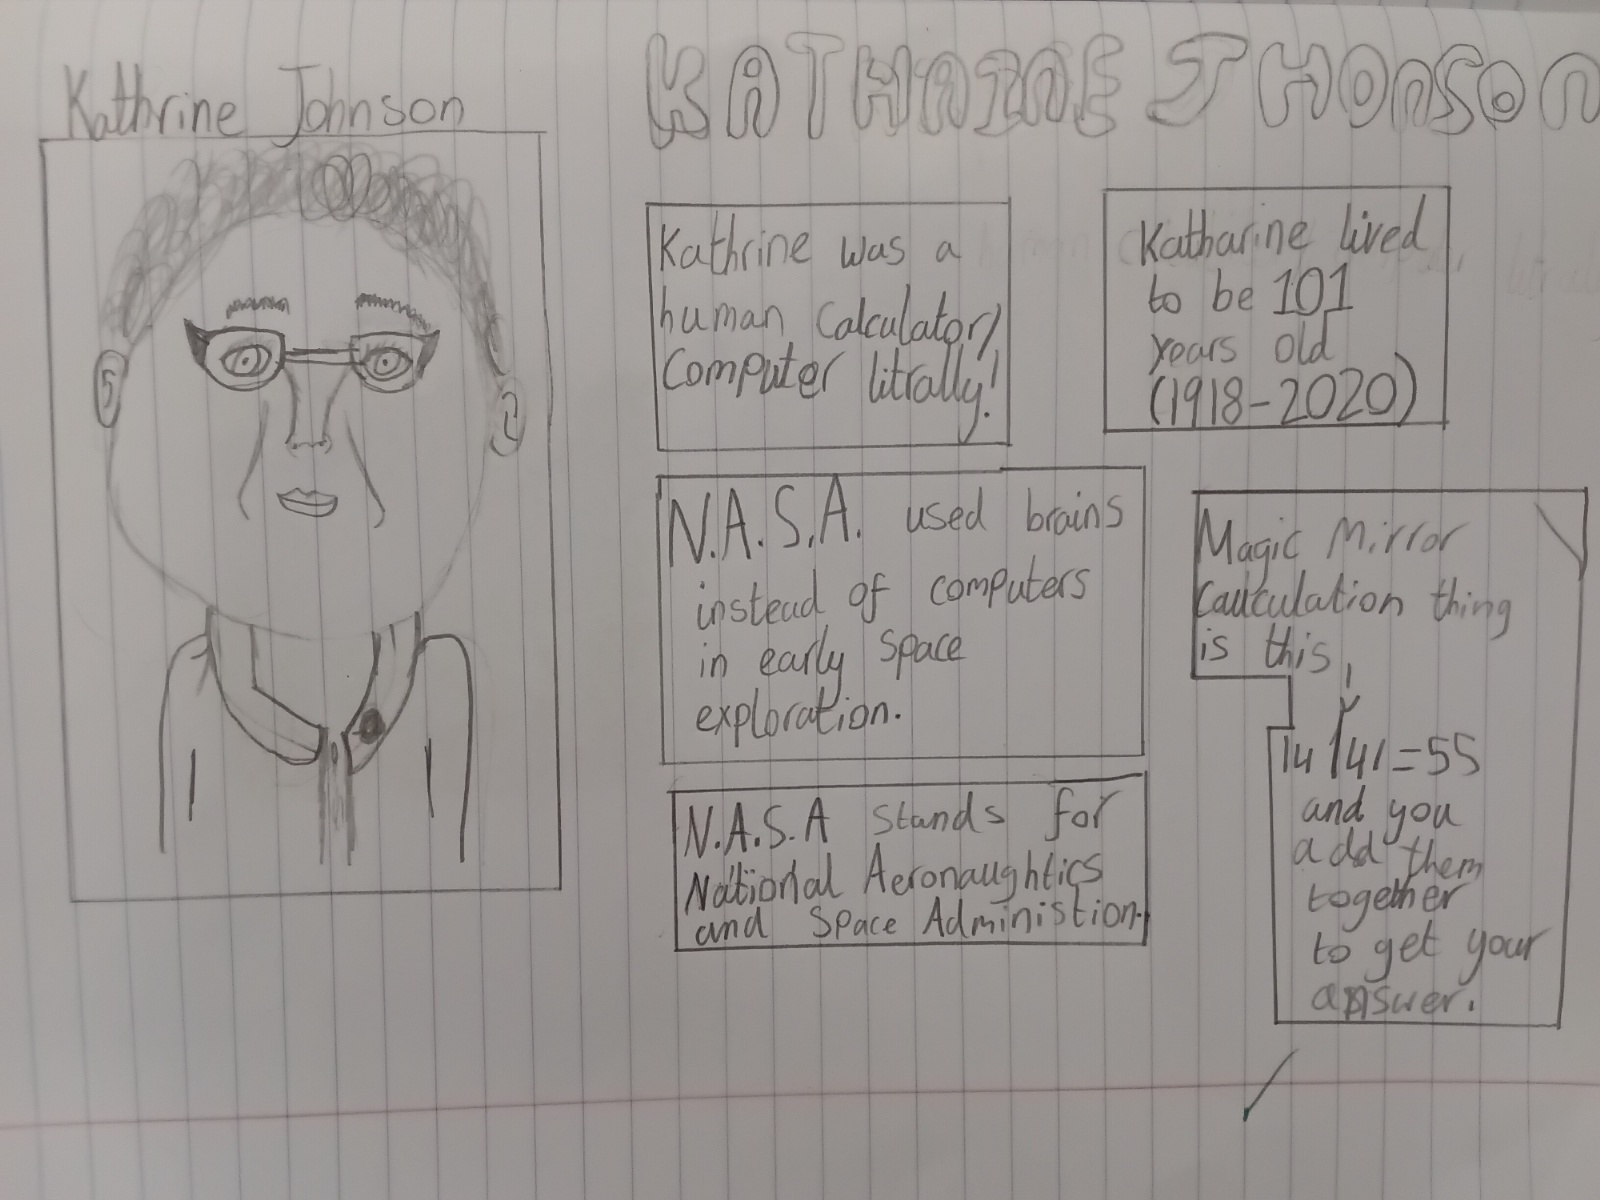 Kathrine Johnson
KATHRINE JHONSON
Kathrine was a
human calculator/
Computer litrally!
Katharine lived
to be 101
years old
(1918-2020)
N.A.S.A. used brains
instead of computers
in early space
exploration.
N.A.S.A stands for
National Aeronaughtics
and Space Administion.
Magic Mirror
Caulculation thing
is this,
14 41=55
and you
add them
together
to get your
answer.